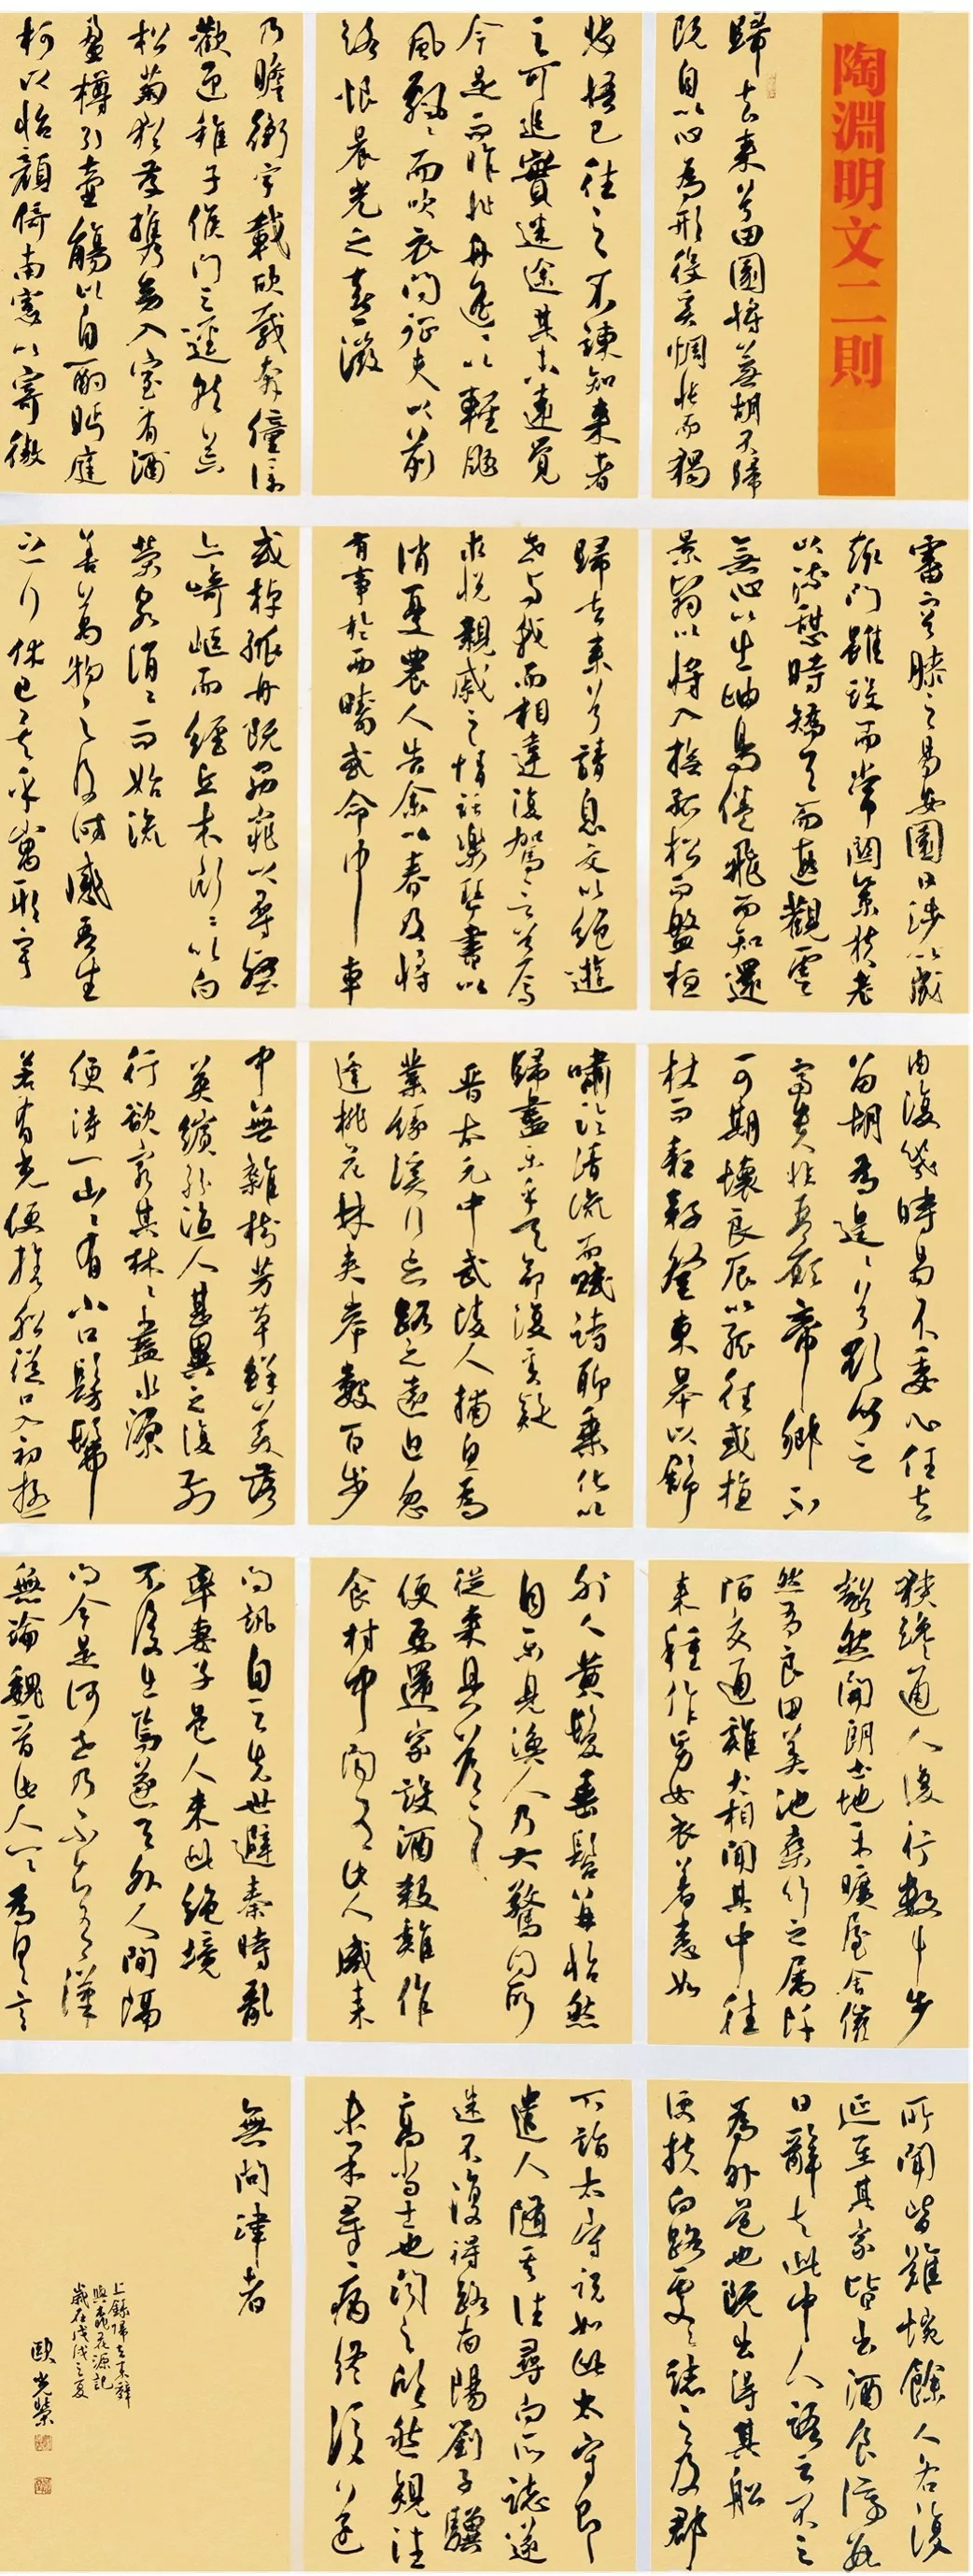 陶淵明文二則
歸去來兮田園將蕪胡不歸
既自以心為形役奚惆悵而獨
悲悟已往之不諫知來者
之可追實迷途其未遠覺
今是而昨非舟遙遙以輕颺
風飄飄而吹衣問征夫以前
路恨晨光之熹微
乃瞻衡宇載欣載奔僮僕
歡迎稚子候門三逕就荒
松菊猶存攜幼入室有酒
盈樽引壺觴以自酌眄庭
柯以怡顏倚南窗以寄傲
審容膝之易安園日涉以成
趣門雖設而常關策扶老
以流憩時矯首而遐觀雲
無心以出岫鳥倦飛而知還
景翳翳以將入撫孤松而盤桓
歸去來兮請息交以絕遊
世與我而相違復駕言兮焉
求悅親戚之情話樂琴書以
消憂農人告余以春及將
有事於西疇或命巾車
或棹孤舟既窈窕以尋壑
亦崎嶇而經丘木欣欣以向
榮泉涓涓而始流
善萬物之得時感吾生
之行休已矣乎寓形宇
內復幾時曷不委心任去
留胡為遑遑兮欲何之
富貴非吾願帝鄉不
可期懷良辰以孤往或植
杖而耘耔登東皋以舒
嘯臨清流而賦詩聊乘化以
歸盡樂乎天命復奚疑
晉太元中武陵人捕魚為
業緣溪行忘路之遠近忽
逢桃花林夾岸數百步
中無雜樹芳草鮮美落
英繽紛漁人甚異之復前
行欲窮其林林盡水源
便得一山山有小口髣髴
若有光便捨船從口入初極
狹纔通人復行數十步
豁然開朗土地平曠屋舍儼
然有良田美池桑竹之屬阡
陌交通雞犬相聞其中往
來種作男女衣著悉如
外人黃髮垂髫並怡然
自樂見漁人乃大驚問所
從來具答之
便要還家設酒殺雞作
食村中聞有此人咸來
問訊自云先世避秦時亂
率妻子邑人來此絕境
不復出焉遂與外人間隔
問今是何世乃不知有漢
無論魏晉此人一一為具言
所聞皆歎惋餘人各復
延至其家皆出酒食停數
日辭去此中人語云不足
為外人道也既出得其船
便扶向路處處誌之及郡
下詣太守說如此太守即
遣人隨其往尋向所誌遂
迷不復得路南陽劉子驥
高尚士也聞之欣然規往
未果尋病終後遂
無問津者
上錄歸去來辭
與桃花源記
歲在戊戌之夏
歐光榮